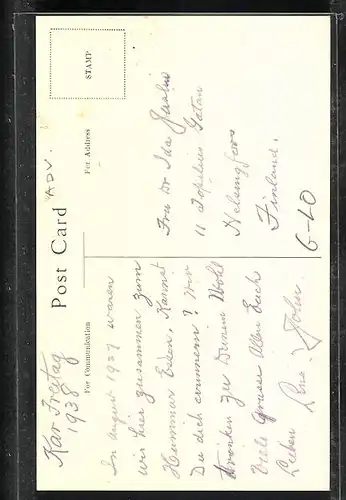 Kar Freitag
1938
ADV.
Post Card
For Communication
For Address
STAMP
In August 1937 waren
wir hier zusammen zum
Hummer Essen, Kannst
Du dich erinnern? Wir
tranken zu Deinem Wohl
Viele Grüsse Allen Euch
Lieben
John
Frau Dr Ida
11 Topelius Gatan
Helsingfors
Finland.
6-40